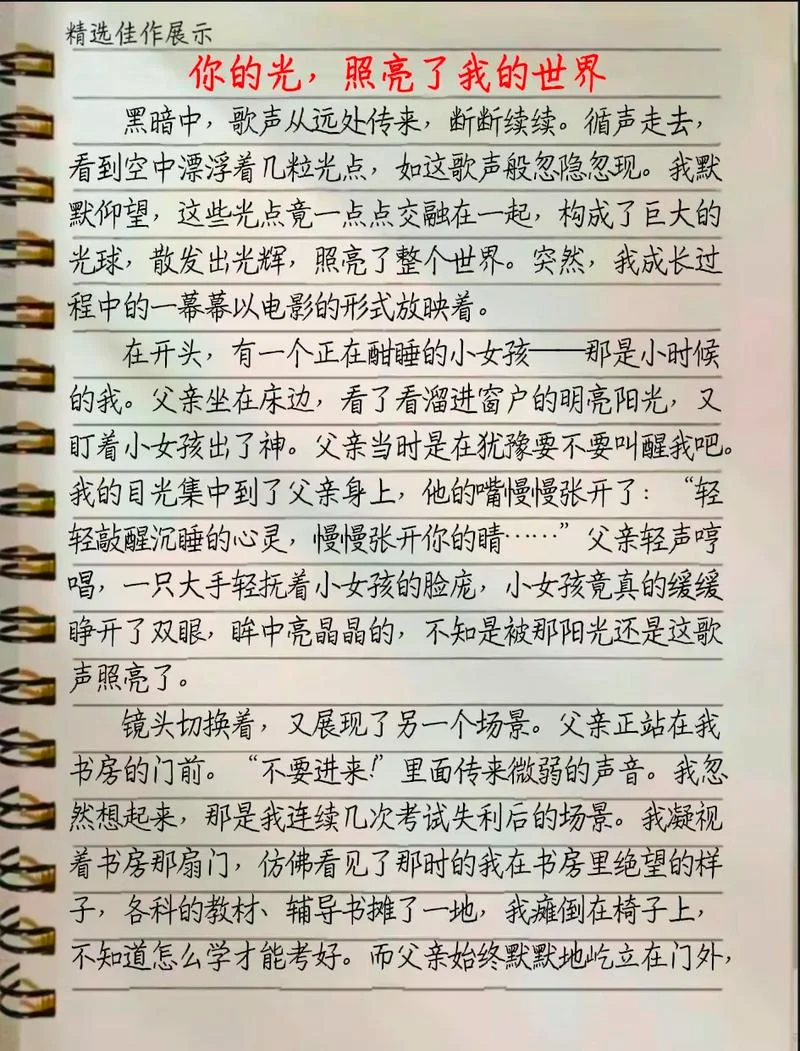 精选佳作展示
你的光，照亮了我的世界
黑暗中，歌声从远处传来，断断续续。循声走去，
看到空中漂浮着几粒光点，如这歌声般忽隐忽现。我默
默仰望，这些光点竟一点点交融在一起，构成了巨大的
光球，散发出光辉，照亮了整个世界。突然，我成长过
程中的一幕幕以电影的形式放映着。
在开头，有一个正在酣睡的小女孩——那是小时候
的我。父亲坐在床边，看了看溜进窗户的明亮阳光，又
盯着小女孩出了神。父亲当时是在犹豫要不要叫醒我吧。
我的目光集中到了父亲身上，他的嘴慢慢张开了：“轻
轻敲醒沉睡的心灵，慢慢张开你的睛……”父亲轻声哼
唱，一只大手轻抚着小女孩的脸庞，小女孩竟真的缓缓
睁开了双眼，眸中亮晶晶的，不知是被那阳光还是这歌
声照亮了。
镜头切换着，又展现了另一个场景。父亲正站在我
书房的门前。“不要进来！”里面传来微弱的声音。我忽
然想起来，那是我连续几次考试失利后的场景。我凝视
着书房那扇门，仿佛看见了那时的我在书房里绝望的样
子，各科的教材、辅导书摊了一地，我瘫倒在椅子上，
不知道怎么学才能考好。而父亲始终默默地屹立在门外，